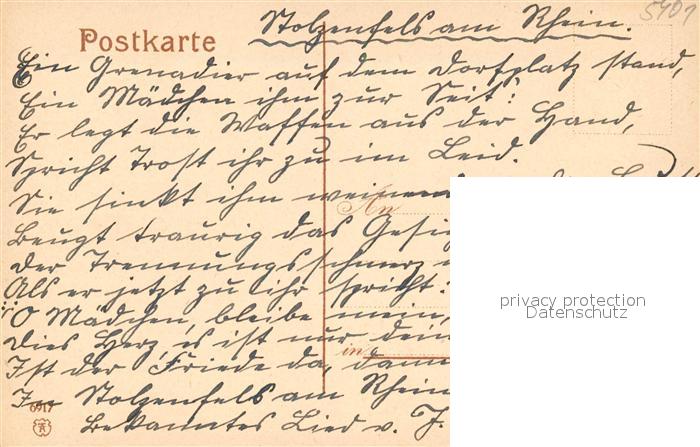 5401
Stolzenfels am Rhein.
Postkarte
Ein Grenadier auf dem Dorfplatz stand,
Ein Mädchen ihm zur Seit':
Er legt die Waffen aus der Hand,
Spricht Trost ihr zu im Leid.
Sie sinkt ihm weinend
An
Beugt traurig das
Der Trennungsschmerz
Als er jetzt zu ihr spricht:
"O Mädchen, bleibe mein,
Dies Herz, es ist nur dein
Ist der Friede da, dann
in
In Stolzenfels am Rhein
6917
Bekanntes Lied v. J.
privacy protection
Datenschutz